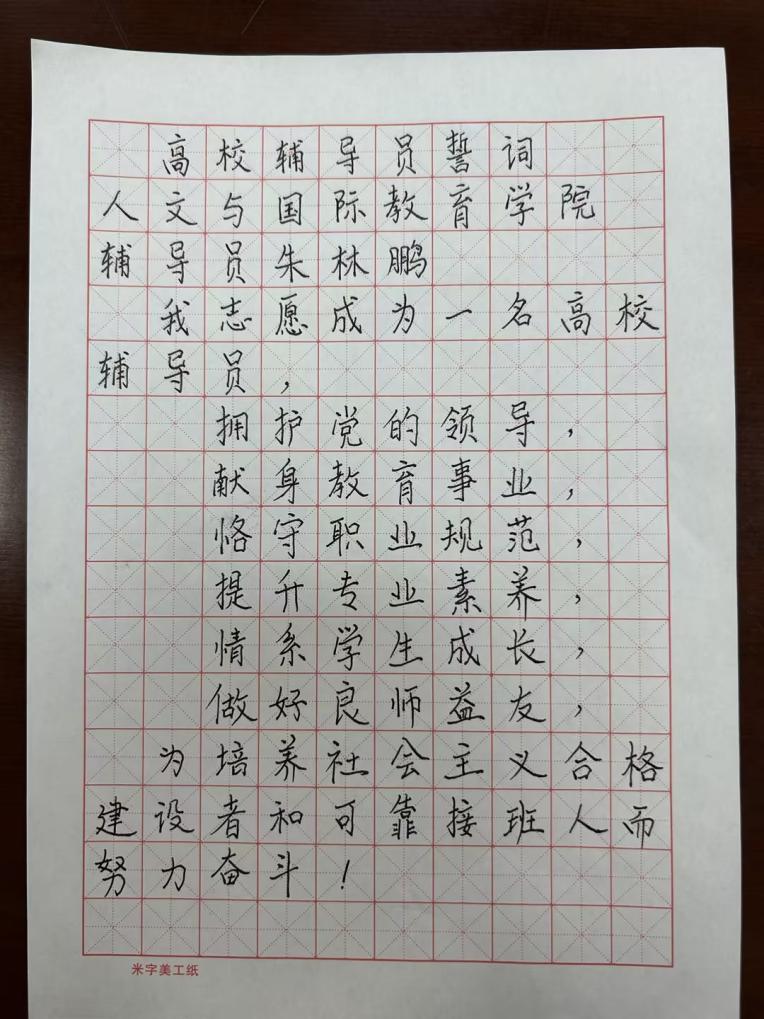 高校辅导员誓词
人文与国际教育学院
辅导员朱林鹏
我志愿成为一名高校
辅导员，
拥护党的领导，
献身教育事业，
恪守职业规范，
提升专业素养，
情系学生成长，
做好良师益友，
为培养社会主义合格
建设者和可靠接班人而
努力奋斗！
米字美工纸